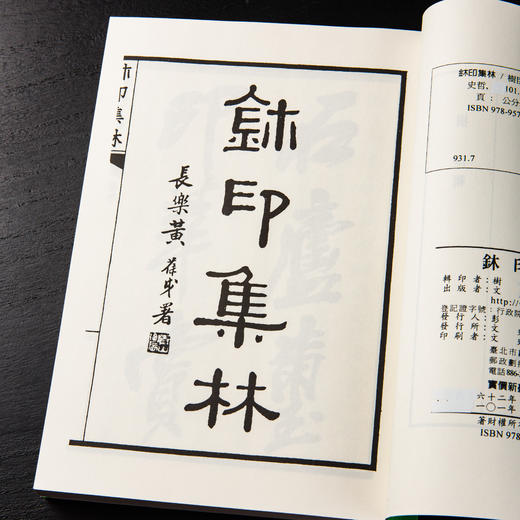 鉥印集林
長樂黃葆戉署
印集林
鉥印集林 / 樹
史哲, 101.
頁: 公分
ISBN 978-957
931.7
鉥印
轉印者:樹
出版者:文
http://
登記證字號:行政院
發行人:彭
發行所:文
印刷者:文
臺北市
郵政劃撥
電話886-
實價新
六十二年
一〇一年
著財權所
ISBN 978